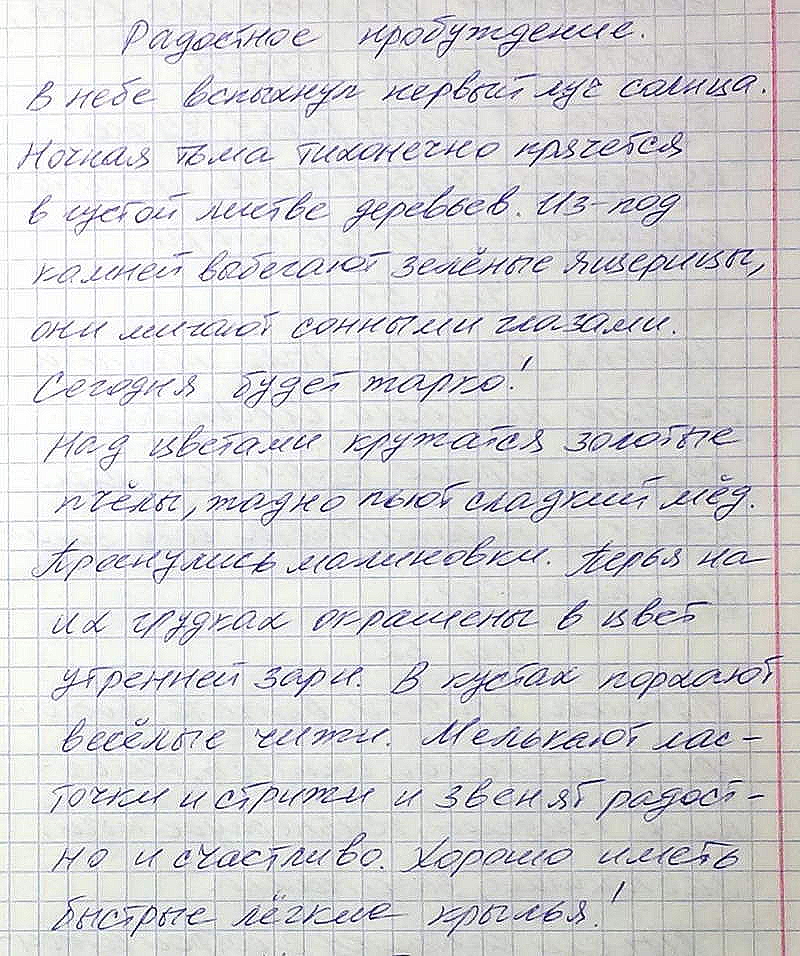 Радостное пробуждение.
В небе вспыхнул первый луч солнца.
Ночная тьма тихонечно прячется
в густой листве деревьев. Из-под
камней выбегают зелёные ящерицы,
они мигают сонными глазами.
Сегодня будет жарко!
Над цветами кружатся золотые
пчёлы, жадно пьют сладкий мёд.
Проснулись малиновки. Перья на
их грудках окрашены в цвет
утренней зари. В кустах порхают
весёлые чижи. Мелькают лас-
точки и стрижи и звенят радост-
но и счастливо. Хорошо иметь
быстрые лёгкие крылья!